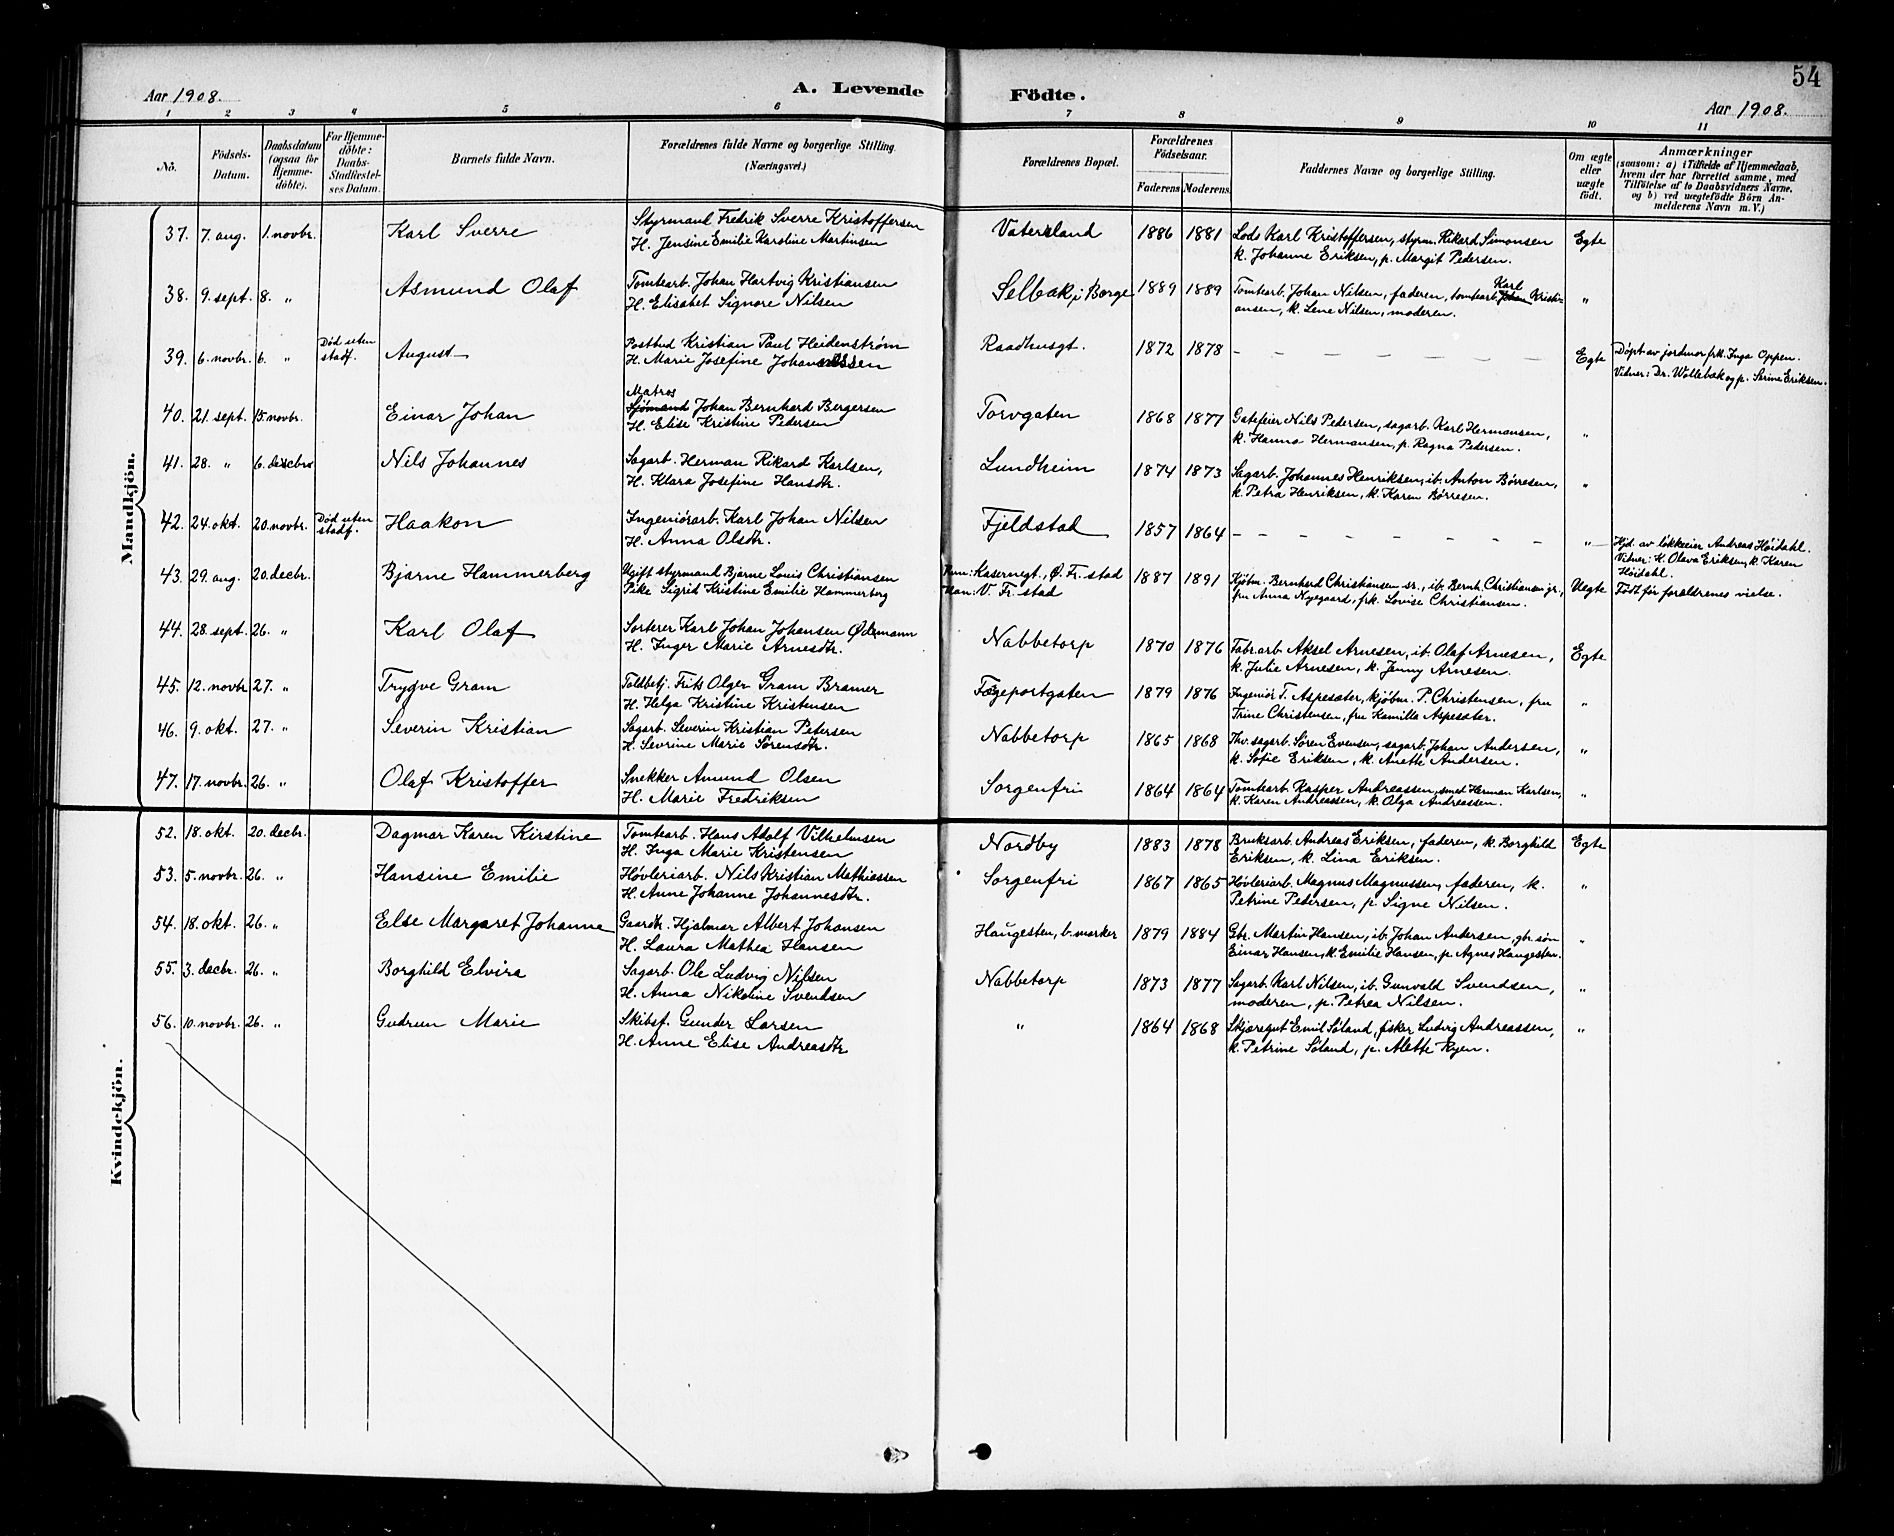 54
Aar 1908.
A. Levende
Födte.
Aar 1908.
1 2 3 4 5 6 7 8 9 10 11
No.
Födsels-
Datum.
Daabsdatum
(ogsaa for
Hjemme-
döbte).
For Hjemme-
döbte:
Daabs-
Stadfæstel-
ses Datum.
Barnets fulde Navn.
Forældrenes fulde Navne og borgerlige Stilling
(Næringsvei.)
Forældrenes Bopæl.
Forældrenes
Födselsaar.
Faderens Moderens
Faddernes Navne og borgerlige Stilling.
Om ægte
eller
uægte
født.
Anmærkninger
(saasom: a) i Tilfælde af Hjemmedaab,
hvem der har forrettet samme, med
Tilføielse af to Daabsvidners Navne,
og b) ved uægtefødte Börn An-
melderens Navn m. V.)
Mandkjön.
37. 7. aug. 1. novbr. Karl Sverre
Styrmand Fredrik Sverre Kristoffersen
H. Jensine Emilie Karoline Martinsen
Vaterland 1886 1881
Lods Karl Kristoffersen, styrm. Rikard Simonsen
k. Johanne Eriksen, p. Margit Pedersen.
Egte
38. 9. sept. 8. „ Asmund Olaf
Tomtearb. Johan Hartvig Kristiansen
H. Elisabet Signore Nilsen
Selbak i Borge 1889 1889
Karl
Tomtearb. Johan Nilsen, faderen, tomtearb. Johan Kristi-
ansen, k. Lene Nilsen, moderen.
„
39. 6. novbr. 6. „ Død uten
stadf. August
Postbud Kristian Paul Heidenstrøm
H. Marie Josefine Johannessen
Raadhusgt. 1872 1878 – – – – – – – –
Egte
Døpt av jordmor frk. Inga Oppen.
Vidner: Dr. Wollebæk og p. Serine Eriksen.
40. 21. sept. 15. novbr. Einar Johan
Matros
Sjømand Johan Bernhard Bergersen
H. Elise Kristine Pedersen
Torvgaten 1868 1877
Gatefeier Nils Pedersen, sagarb. Karl Hermansen,
k. Hanna Hermansen, p. Ragna Pedersen.
„
41. 28. „ 6. decbr. Nils Johannes
Sagarb. Herman Rikard Karlsen,
H. Klara Josefine Hansdtr.
Lundheim 1874 1873
Sagarb. Johannes Henriksen, ib. Anton Børresen,
k. Petra Henriksen, k. Karen Børresen.
„
42. 24. okt. 20. novbr. Død uten
stadf. Haakon
Ingeniörarb. Karl Johan Nilsen
H. Anna Olsdtr.
Fjeldstad 1857 1864 – – – – – – – –
„
Hjd. av løkkeeier Andreas Høidahl.
Vidner: k. Olava Eriksen, k. Karen
Høidahl.
43. 29. aug. 20. decbr. Bjarne Hammerberg
Ugift styrmand Bjarne Louis Christiansen
Pike Sigrid Kristine Emilie Hammerberg
Kasernegt., Ø. Fr. stad
V. Fr. stad
1887 1891
Kjøbm. Bernhard Christiansen sr., ib. Bernh. Christiansen jr.,
fru Anna Nygaard, frk. Lovise Christiansen.
Uegte
Født før forældrenes vielse.
44. 28. sept. 26. „ Karl Olaf
Sorterer Karl Johan Johansen Ødemann
H. Inger Marie Arnesdtr.
Nabbetorp 1870 1876
Fabr.arb. Aksel Arnesen, ib. Olaf Arnesen,
k. Julie Arnesen, k. Jenny Arnesen.
Egte
45. 12. novbr 27. „ Trygve Gram
Toldbetj. Frits Olger Gram Bramer
H. Helga Kristine Kristensen
Færgeportgaten 1879 1876
Ingeniør T. Aspesæter, kjøbm. P. Christensen, fru
Trine Christensen, fru Kamilla Aspesæter.
„
46. 9. okt. 27. „ Severin Kristian
Sagarb. Severin Kristian Petersen
H. Sevrine Marie Sörensdtr.
Nabbetorp 1865 1868
Fhv. sagarb. Søren Evensen, sagarb. Johan Andersen,
k. Sofie Eriksen, k. Anette Andersen.
„
47. 17. novbr. 26. „ Olaf Kristoffer
Snekker Amund Olsen
H. Marie Fredriksen
Sorgenfri 1864 1864
Tomtearb. Kasper Andreassen, smed Herman Karlsen,
k. Karen Andreassen, k. Olga Andreassen.
„
Kvindekjön.
52. 18. okt. 20. decbr. Dagmar Karen Kirstine
Tomtearb. Hans Adolf Vilhelmsen
H. Inga Marie Kristensen
Nordby 1883 1878
Bruksarb. Andreas Eriksen, faderen, k. Borghild
Eriksen, k. Lina Eriksen.
Egte
53. 5. novbr. 26. „ Hansine Emilie
Høvleriarb. Nils Kristian Mathiassen
H. Anne Johanne Johannesdtr.
Sorgenfri 1867 1865
Høvleriarb. Magnus Magnussen, faderen, k.
Petrine Pedersen, p. Signe Nilsen.
„
54. 18. okt. 26. „ Else Margaret Johanne
Gaardbr. Hjalmar Albert Johansen
H. Laura Mathea Hansen
Haugesten, b. marker 1879 1884
Gbr. Martin Hansen, ib. Johan Andersen, gbr. søn
Einar Hansen, k. Emilie Hansen, p. Agnes Haugesten.
„
55. 3. decbr. 26. „ Borghild Elvira
Sagarb. Ole Ludvig Nilsen
H. Anna Nikoline Svendsen
Nabbetorp 1873 1877
Sagarb. Karl Nilsen, ib. Gunvald Svendsen,
moderen, p. Petrea Nilsen.
„
56. 10. novbr. 26. „ Gudrun Marie
Skibsf. Gunder Larsen
H. Anne Elise Andreasdtr
„ 1864 1868
Skjæregut Emil Søland, fisker Ludvig Andreassen,
k. Petrine Søland, p. Alette Ryen.
„